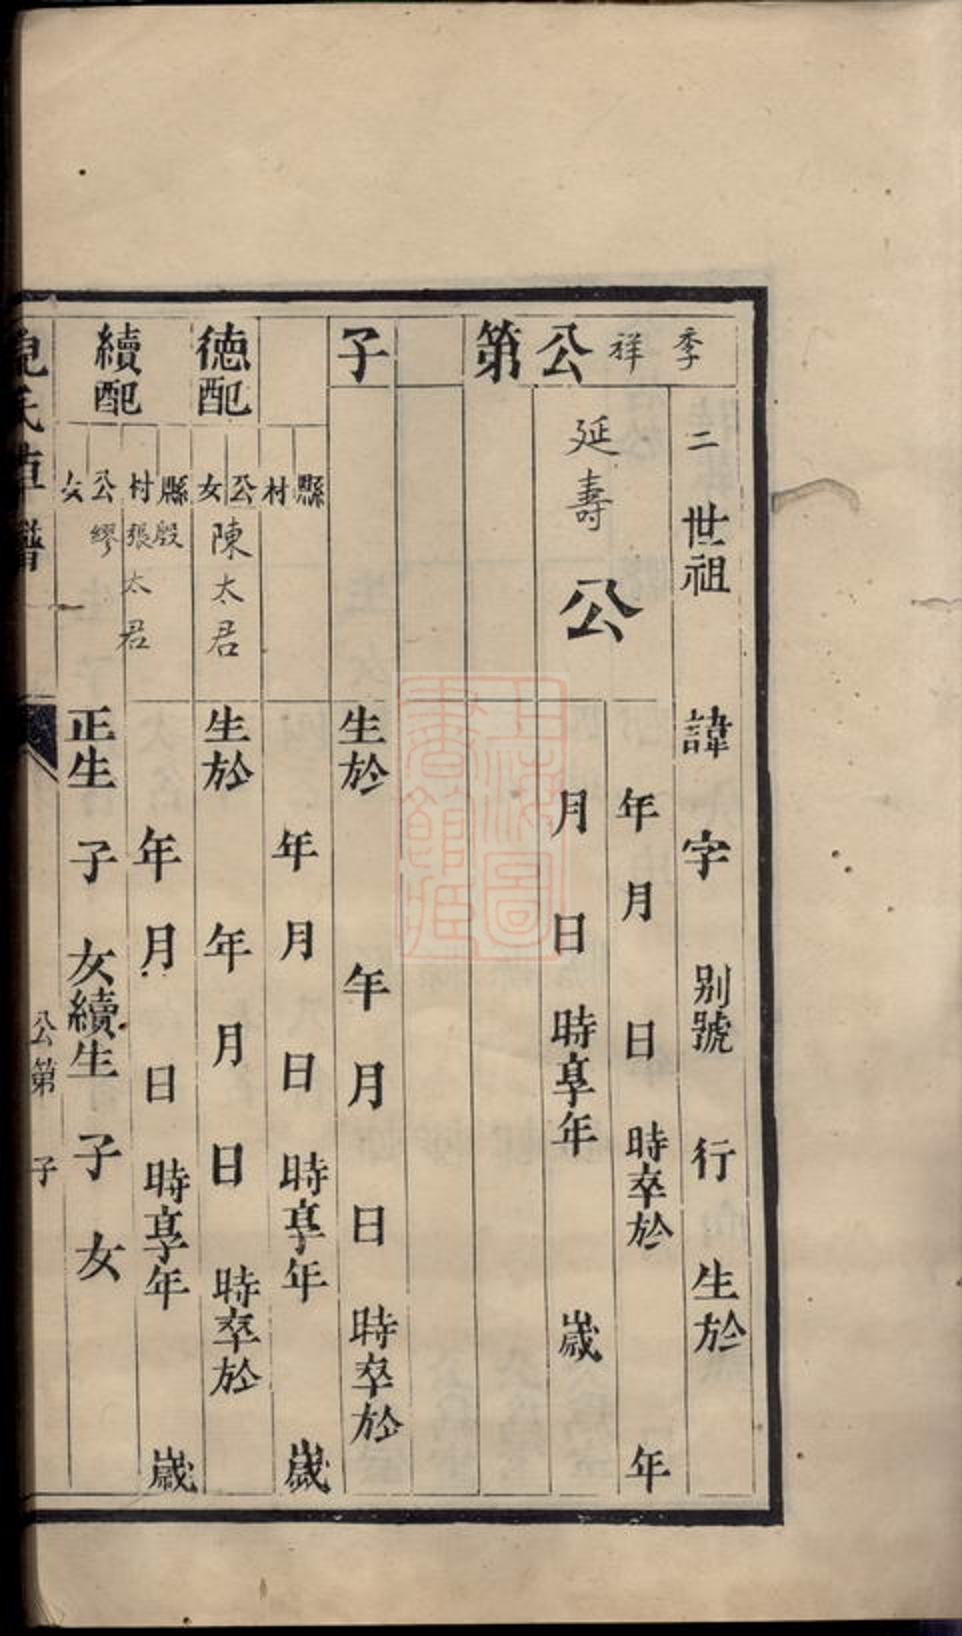 季祥公第 子
二世祖 諱 字 別號 行 生於
年 月 日 時卒於 年
延壽公 月 日 時享年 歲
生於 年 月 日 時卒於
縣 村 年 月 日 時享年 歲
德配 公女 陳太君 生於 年 月 日 時卒於
縣 村 殷張太君 年 月 日 時享年 歲
續配 公女 繆 正生 子 女續生 子 女
氏草譜 公第 子
上海圖書館藏